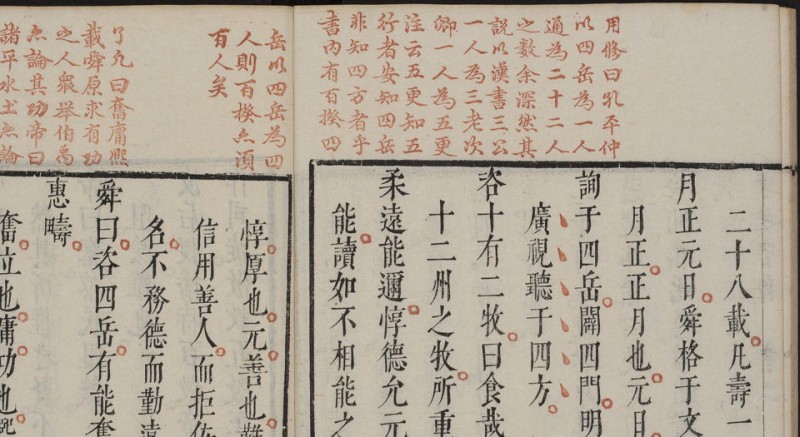 用修曰孔平仲
以四岳為一人
通為二十二人
之数余深然其
説以漢書三公
一人為三老次
卿一人為五更
注云五更知五
行者安知四岳
非知四方者乎
書內有百揆四
岳以四岳為四
人則百揆亦須
百人矣
二十八載凡壽一
月正元日舜格于文
月正正月也元日
詢于四岳闢四門明
廣視聽于四方
咨十有二牧曰食哉
十二州之牧所重
柔遠能邇惇德允元
能讀如不相能之
了凡曰奮庸熙
載舜原求有功
之人衆举伯禹
亦論其功帝曰
諸平水土亦論
惇厚也元善也難
信用善人而拒佞
名不務德而勤遠
舜曰咨四岳有能奮
惠疇
奮立也庸功也熙